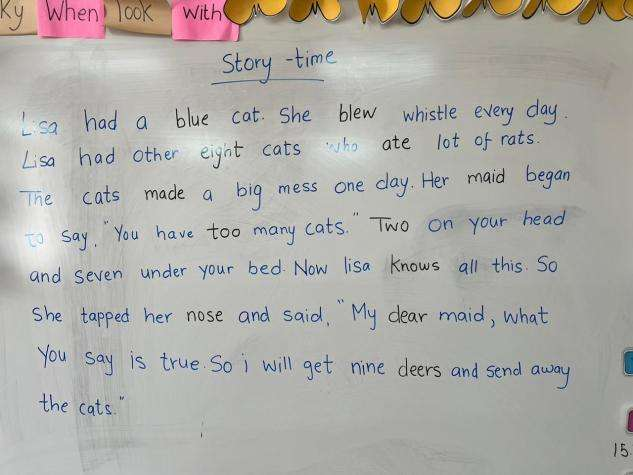 ky When look With
Story -time
Lisa had a blue cat. She blew whistle every day.
Lisa had other eight cats who ate lot of rats.
The cats made a big mess one day. Her maid began
to say, "You have too many cats." Two on your head
and seven under your bed. Now lisa knows all this. So
She tapped her nose and said, "My dear maid, what
You say is true. So i will get nine deers and send away
the cats."
15